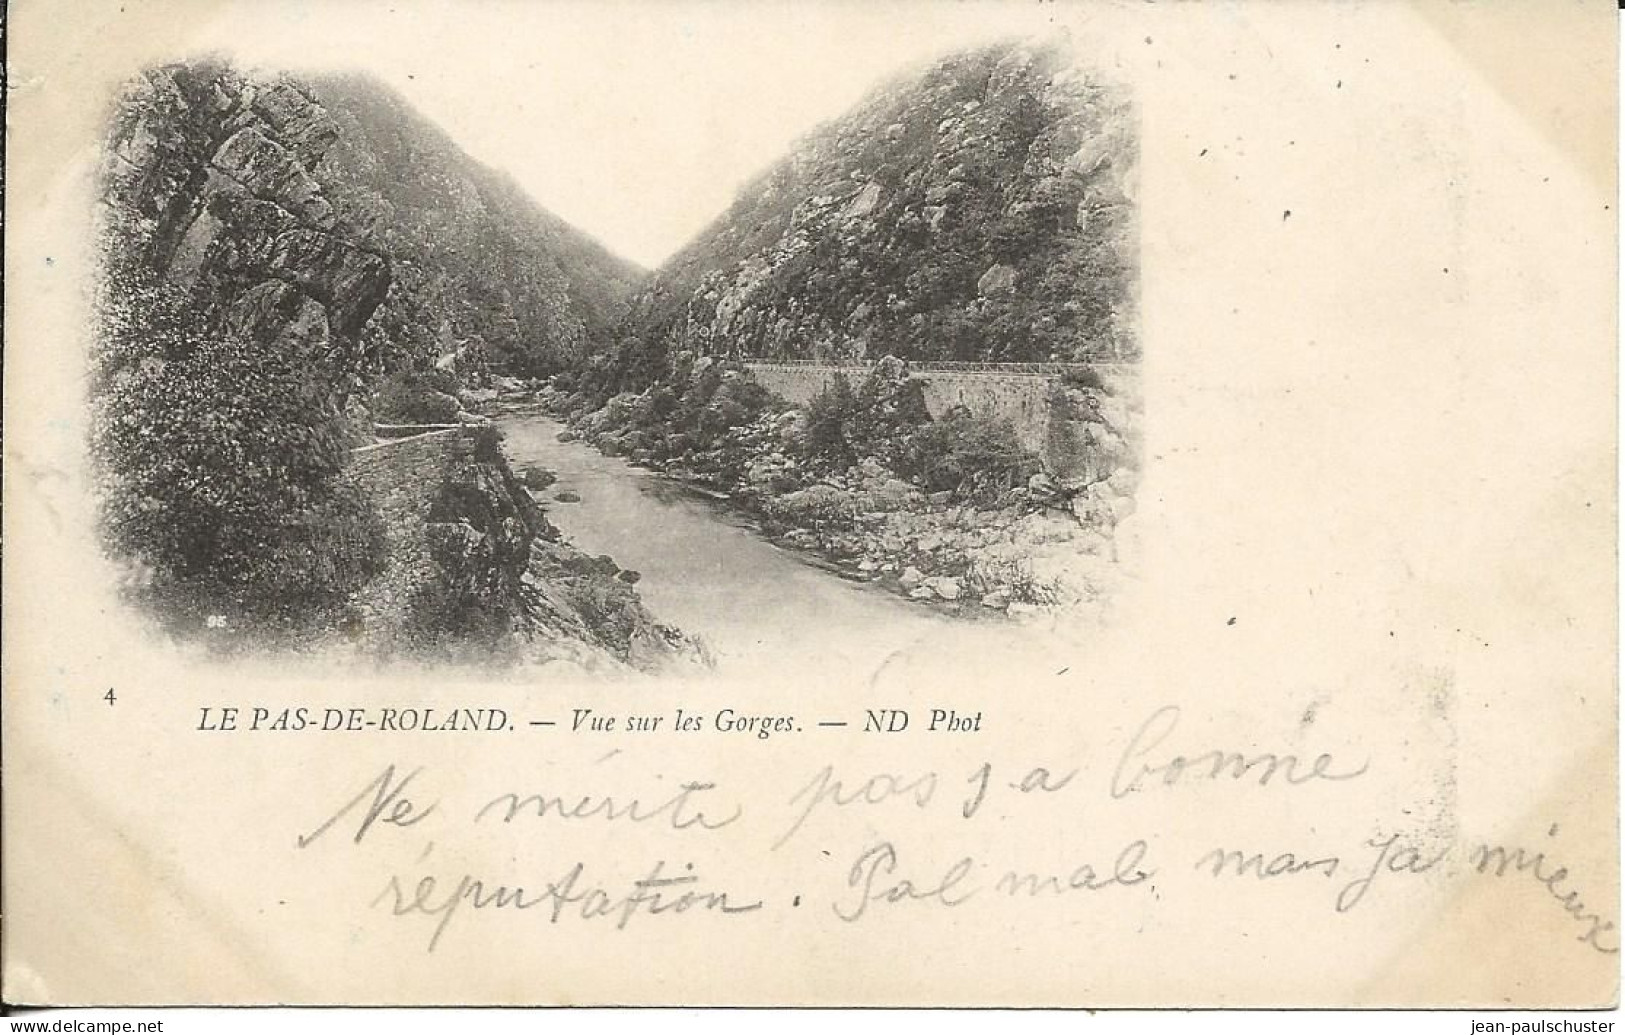 95
4
LE PAS-DE-ROLAND. — Vue sur les Gorges. — ND Phot
Ne mérite pas sa bonne
réputation. Pal mal, mais ja mieux
www.delcampe.net
jean-paulschuster